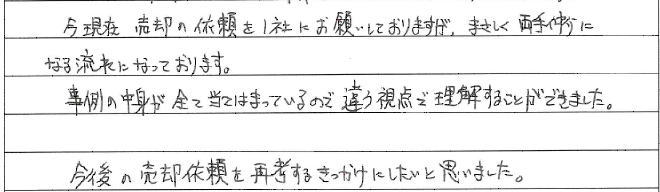 今現在 売却の依頼を1社にお願いしておりますが、まさしく両手仲介に
なる流れになっております。
事例の中身が全て当てはまっているので違う視点で理解することができました。
今後の売却依頼を再考するきっかけにしたいと思いました。